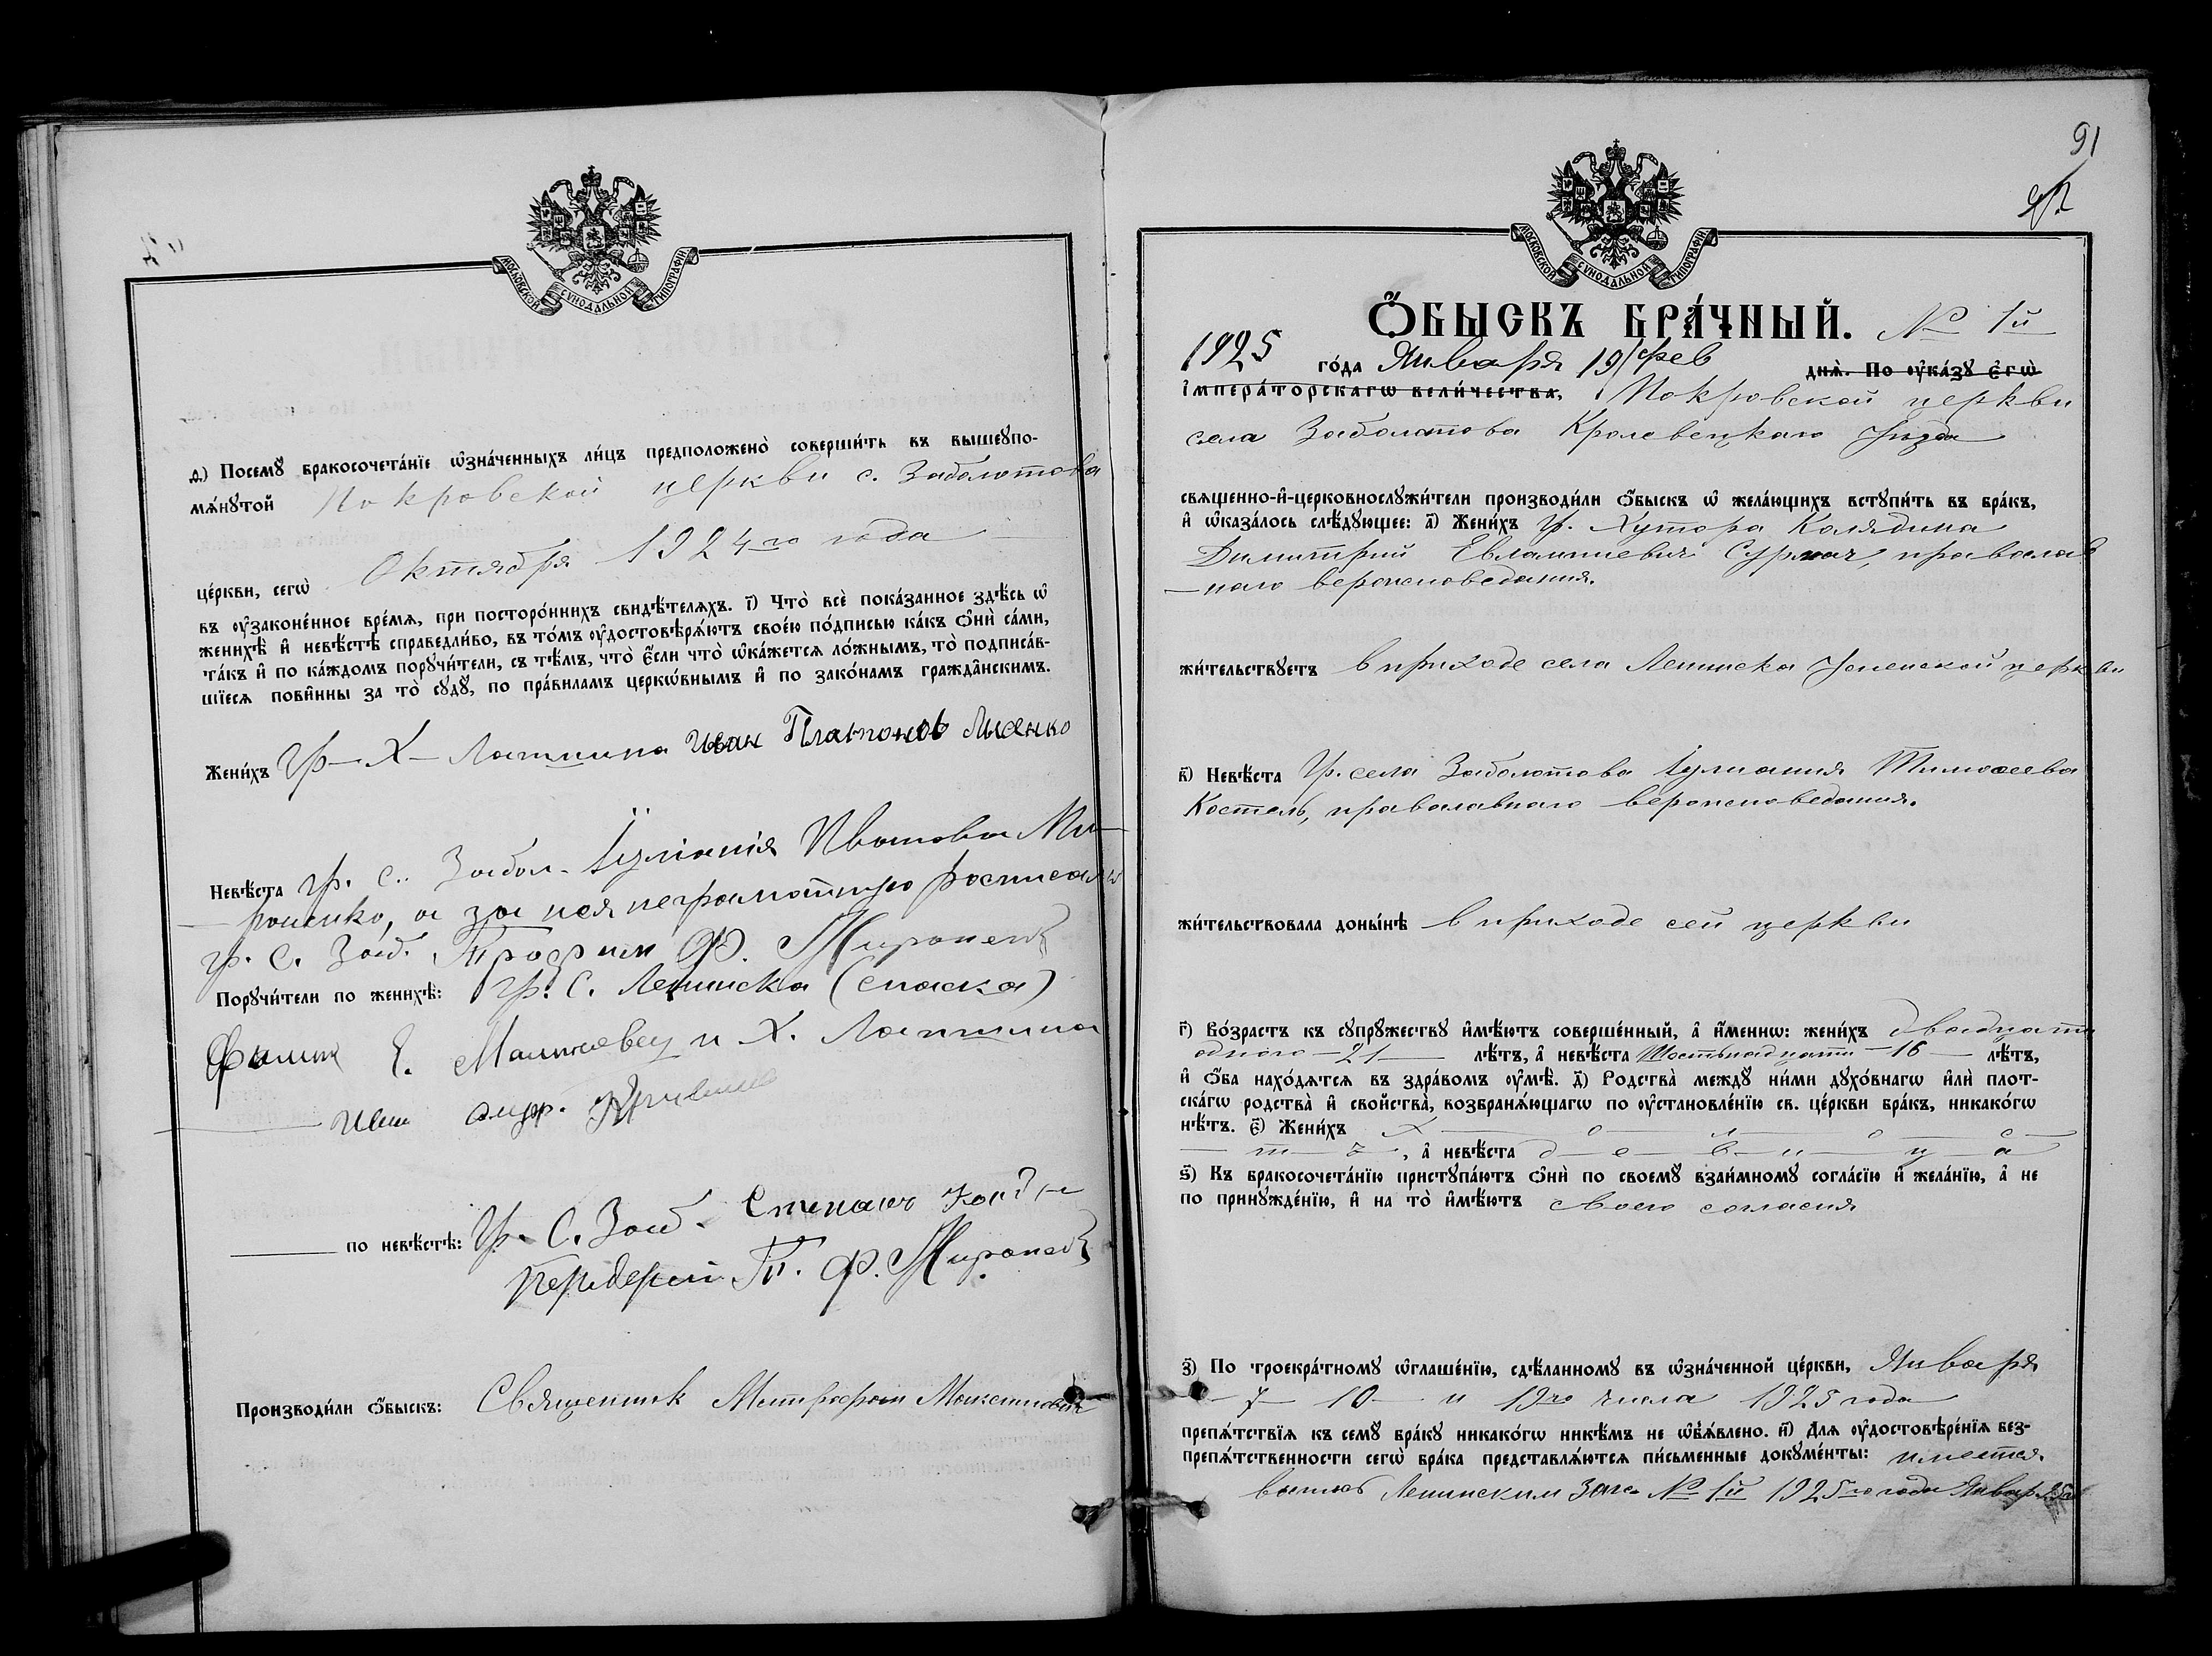 МОСКОВСКОЙ СѴНОДАЛЬНОЙ ТИПОГРАФІИ
ѳ҃.) Посемꙋ̀ бракосочета́нїе ѡ҆зна́ченныхъ ли́цъ предположено̀ соверши́ть въ вышеꙋпо-
мѧ́нꙋтой Покровской церкви с. Заболотова
це́ркви, сегѡ̀ Октября 1924го года
въ ᲂу҆законе́нное вре́мѧ, при посторо́ннихъ свидѣ́телѧхъ. і҃) Что̀ всѐ пока́занное здѣ́сь ѡ҆
женихѣ̀ и҆ невѣ́стѣ справедли́во, въ то́мъ ᲂу҆достовѣрѧ́ютъ свое́ю по́дписью ка́къ ѻ҆нѝ са́ми,
та́къ и҆ по ка́ждомъ порꙋчи́тели, съ тѣ́мъ, что̀ є҆́сли что̀ ѡ҆ка́жетсѧ ло́жнымъ, то̀ подписа́в-
шїесѧ пови́нны за то̀ сꙋдꙋ̀, по пра́виламъ церкѡ́внымъ и҆ по зако́намъ гражда̂нскимъ.
Жени́хъ Гр. Х. Лапшина Иван Платонов Лисенко
Невѣ́ста гр. с. Забол. Іулианія Ивановна Ми-
роненко, а за нея неграмотную росписался
гр. с. Заб. Трофим Ф. Мироненко
Порꙋчи́тели по женихѣ̀: гр. с. Ленинска (Спаска)
Филип Е. Малиновец и Х. Лапшина
по невѣ́стѣ: Гр. С. Заб. Степан
Т. Ф. Мироненко
Производи́ли ѻ҆́быскъ: Священник Митрофан
91
МОСКОВСКОЙ СѴНОДАЛЬНОЙ ТИПОГРАФІИ
Ѻ҆́БЫСКЪ БРА́ЧНЫЙ. № 1й
1925 го́да Января 19/фев днѧ̀. По ᲂу҆ка́зꙋ є҆гѡ̀
і҆мпера́торскагѡ вели́чества, Покровской церкви
села Заболотова Кролевецкаго Уезда
свѧще́нно-и҆-церковнослꙋжи́тели производи́ли ѻ҆́быскъ ѡ҆ жела́ющихъ встꙋпи́ть въ бра́къ,
и҆ ѡ҆каза́лось слѣ́дꙋющее: а҃) Жени́хъ гр. Хутора Калядина
Димитрий Евлампиевич Сурмач, православ
наго вероисповедания.
жи́тельствꙋетъ в приходе села Ленинска Успенской церкви
в҃) Невѣ́ста Гр. села Заболотова Іулиания Тимофеева
Костель, православнаго вероисповедания.
жи́тельствовала доны́нѣ в приходе сей церкви
г҃) Во́зрастъ къ сꙋпрꙋ́жествꙋ и҆мѣ́ютъ соверше́нный, а҆ и҆́меннѡ: жени́хъ двадцати
одного — 21 — лѣ́тъ, а҆ невѣ́ста Шестьнадцати — 16 — лѣ́тъ,
и҆ ѻ҆́ба нахо́дѧтсѧ въ здра́вомъ ᲂу҆мѣ̀. д҃) Родства̀ междꙋ̀ ни́ми дꙋхо́внагѡ и҆лѝ плот-
ска́гѡ родства̀ и҆ сво́йства̀, возбранѧ́ющагѡ по ᲂу҆становле́нїю св. це́ркви бра́къ, никако́гѡ
нѣ́тъ. є҃) Жени́хъ х — о — л — о — с —
— т — ъ —, а҆ невѣ́ста д — е — в — и — ц — а
ѕ҃) Къ бракосочета́нїю пристꙋпа́ютъ ѻ҆нѝ по своемꙋ̀ взаи́мномꙋ согла́сїю и҆ жела́нїю, а҆ не
по принꙋжде́нїю, и҆ на то̀ и҆мѣ́ютъ своего согласия
з҃) По троекра́тномꙋ ѡ҆глаше́нїю, сдѣ́ланномꙋ въ ѡ҆зна́ченной це́ркви, Января
— 7 — 10 — и 19го числа 1925 года
препѧ́тствїѧ къ семꙋ̀ бра́кꙋ никако́гѡ никѣ́мъ не ѡ҆б̾ѧ́влено. и҃) Длѧ̀ ᲂу҆достовѣре́нїѧ без-
препѧ́тственности сегѡ̀ бра́ка представлѧ́ютсѧ пи́сьменные докꙋме́нты: имеется
выпись Ленинским Загс № 1й 1925го года Января